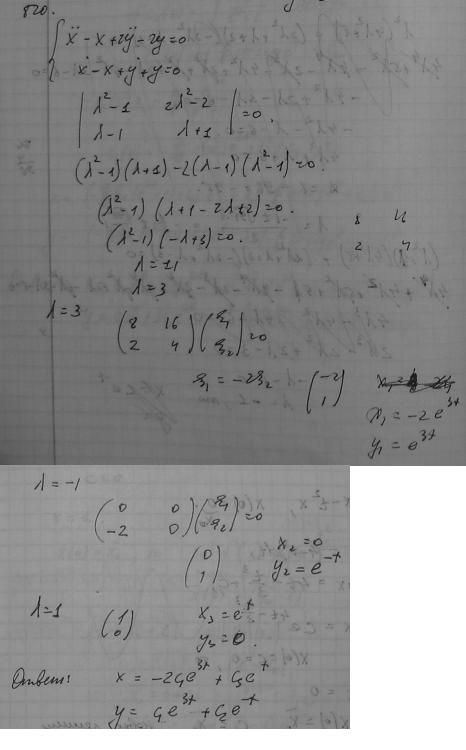 820.
ẍ - x + 2ÿ - 2y = 0
ẋ - x + ẏ + y = 0
| λ²-1 2λ²-2 |
| λ-1 λ+1 | = 0.
(λ²-1)(λ+1) - 2(λ-1)(λ²-1) = 0.
(λ²-1)(λ+1-2λ+2) = 0.
(λ²-1)(-λ+3) = 0.
λ = ±1
λ = 3
8 16
2 4
λ = 3
(8 16) (ξ₁)
(2 4) (ξ₂) = 0
ξ₁ = -2ξ₂ (-2)
(1)
x₁ = -2e^3t
y₁ = e^3t
λ = -1
(0 0) (ξ₁)
(-2 0) (ξ₂) = 0
(0)
(1)
x₂ = 0
y₂ = e^-t
λ = 1
(1)
(0)
x₃ = e^t
y₃ = 0.
Ответ: x = -2C₁e^3t + C₃e^t
y = C₁e^3t + C₂e^-t